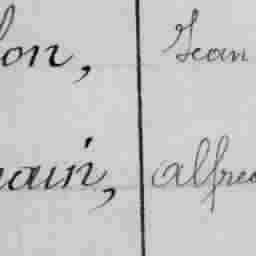 lon, Jean
main, Alfred